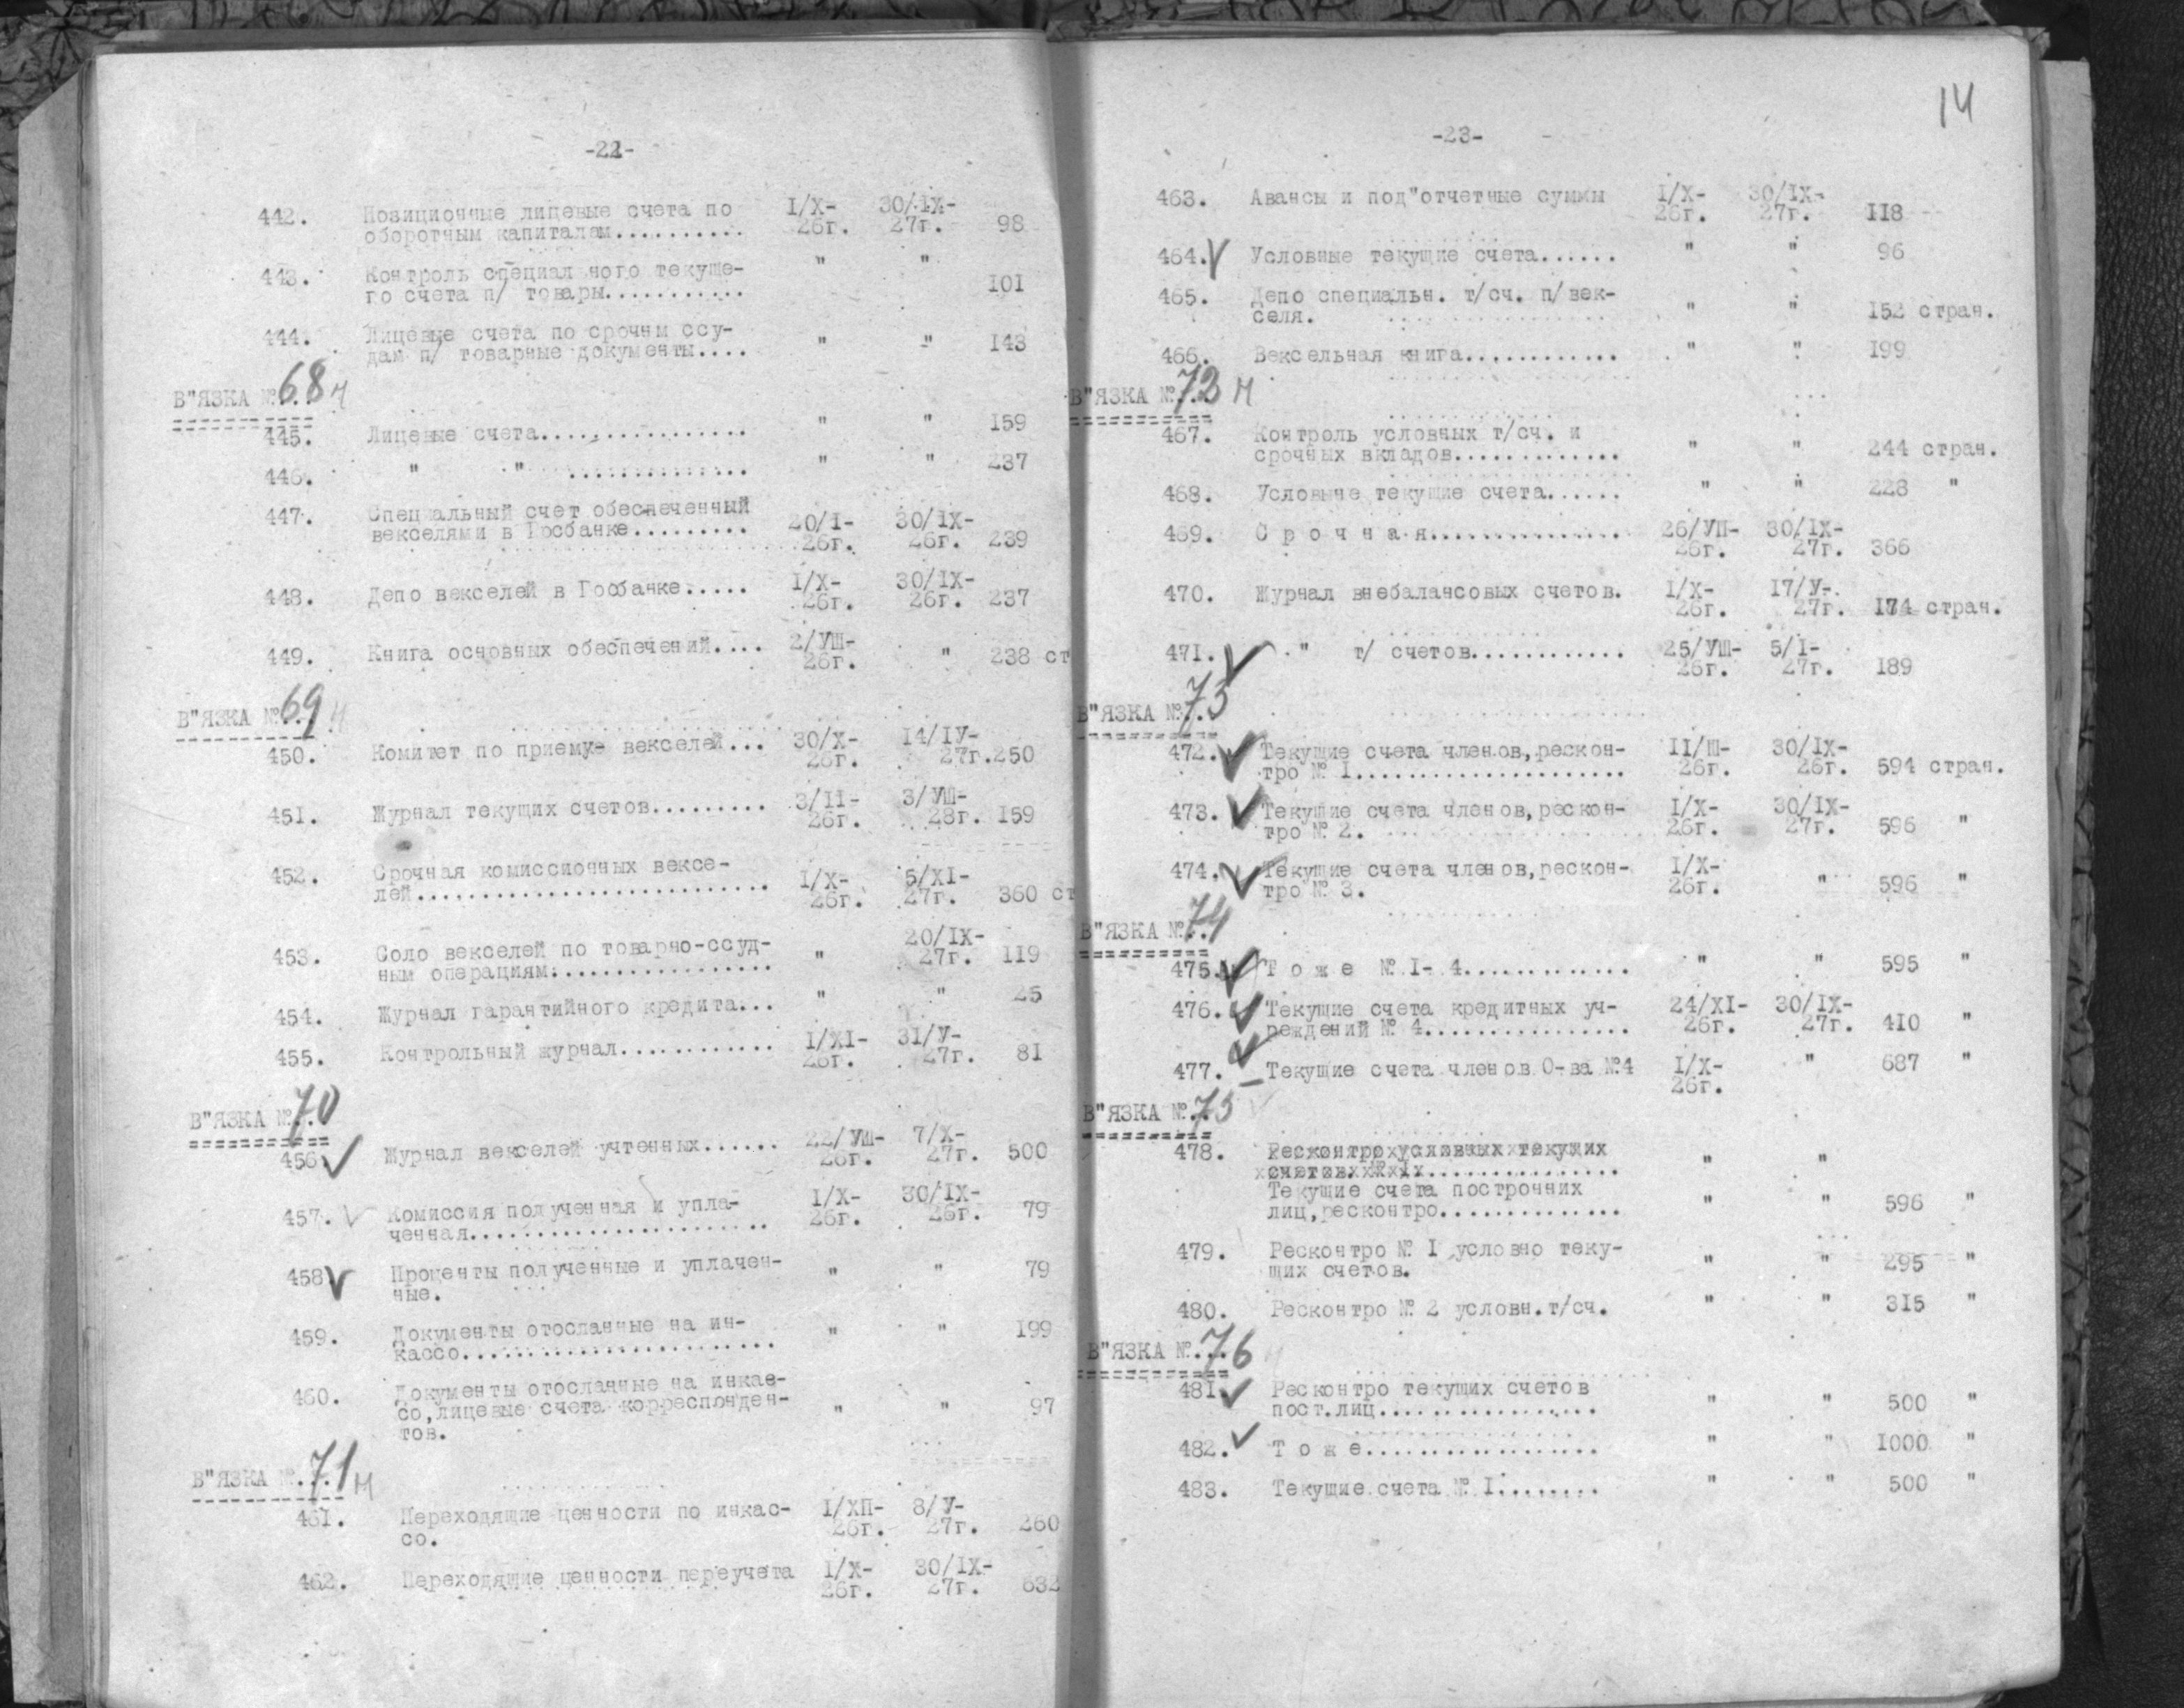 -22-
442. Позиционные лицевые счета по I/X- 30/IX-
оборотным капиталам.......... 26г. 27г. 98
443. Контроль специал ного текуще- " "
го счета п/ товары........... 101
444. Лицевые счета по срочнм ссу-
дам п/ товарные документы.... " " 143
В"ЯЗКА №. 68 н
445. Лицевые счета................ " " 159
446. " " .............. " " 237
447. Специальный счет обеспеченный
векселями в Госбанке......... 20/I- 30/IX-
26г. 26г. 239
448. Депо векселей в Госбанке..... I/X- 30/IX-
26г. 26г. 237
449. Книга основных обеспечений.... 2/УШ-
26г. " 238 ст
В"ЯЗКА №. 69 н
450. Комитет по приему векселей... 30/X- I4/IУ-
26г. 27г. 250
451. Журнал текущих счетов......... 3/II- 3/УШ-
26г. 28г. 159
452. Срочная комиссионных вексе-
лей........................... I/X- 5/XI-
26г. 27г. 360 ст
453. Соло векселей по товарно-ссуд- 20/IX-
ным операциям................. " 27г. 119
454. Журнал гарантийного кредита... " " 25
455. Контрольный журнал............ I/XI- 31/У-
26г. 27г. 81
В"ЯЗКА №. 70
456. Журнал векселей учтенных...... 22/УШ- 7/X-
26г. 27г. 500
457. Комиссия полученная и упла- I/X- 30/IX-
ченная....................... 26г. 26г. 79
458 Проценты полученные и уплачен-
ные. " " 79
459. Документы отосланные на ин-
кассо........................ " " 199
460. Документы отосланные на инкас-
со,лицевые счета корреспонден- " " 97
тов.
В"ЯЗКА №. 71 н
461. Переходящие ценности по инкас- I/ХП- 8/У-
со. 26г. 27г. 260
462. Переходящие ценности переучета I/X- 30/IX-
26г. 27г. 632
14
-23-
463. Авансы и под"отчетные суммы I/X- 30/IX-
26г. 27г. II8
464. Условные текущие счета...... " " 96
465. Депо специальн. т/сч. п/век-
селя. " " 152 стран.
466. Вексельная книга............ " " 199
В"ЯЗКА №. 72 н
467. Контроль условных т/сч. и
срочных вкладов............. " " 244 стран.
468. Условные текущие счета...... " " 228 "
469. С р о ч н а я............... 26/УП- 30/IX-
26г. 27г. 366
470. Журнал внебалансовых счетов. I/X- 17/У-
26г. 27г. 174 стран.
471. " т/ счетов............ 25/УШ- 5/I-
26г. 27г. 189
В"ЯЗКА №. 73
472. Текущие счета членов,рескон- II/Ш- 30/IX-
тро № I..................... 26г. 26г. 594 стран.
473. Текущие счета членов,рескон- I/X- 30/IX-
тро № 2. 26г. 27г. 596 "
474. Текущие счета членов,рескон- I/X-
тро № 3. 26г. " 596 "
В"ЯЗКА №. 74
475. Т о ж е № I- 4............. " " 595 "
476. Текущие счета кредитных уч- 24/XI- 30/IX-
реждений № 4................ 26г. 27г. 410 "
477. Текущие счета членов О-ва №4 I/X- " 687 "
26г.
В"ЯЗКА №. 75
478. Ресконтро условных текущих
счетов № I................ " "
Текущие счета построчних
лиц,ресконтро.............. " " 596 "
479. Ресконтро № I условно теку-
щих счетов. " " 295 "
480. Ресконтро № 2 условн.т/сч. " " 315 "
В"ЯЗКА №. 76
481. Ресконтро текущих счетов
пост.лиц................. " " 500 "
482. Т о ж е.................. " " 1000 "
483. Текущие счета № I........ " " 500 "